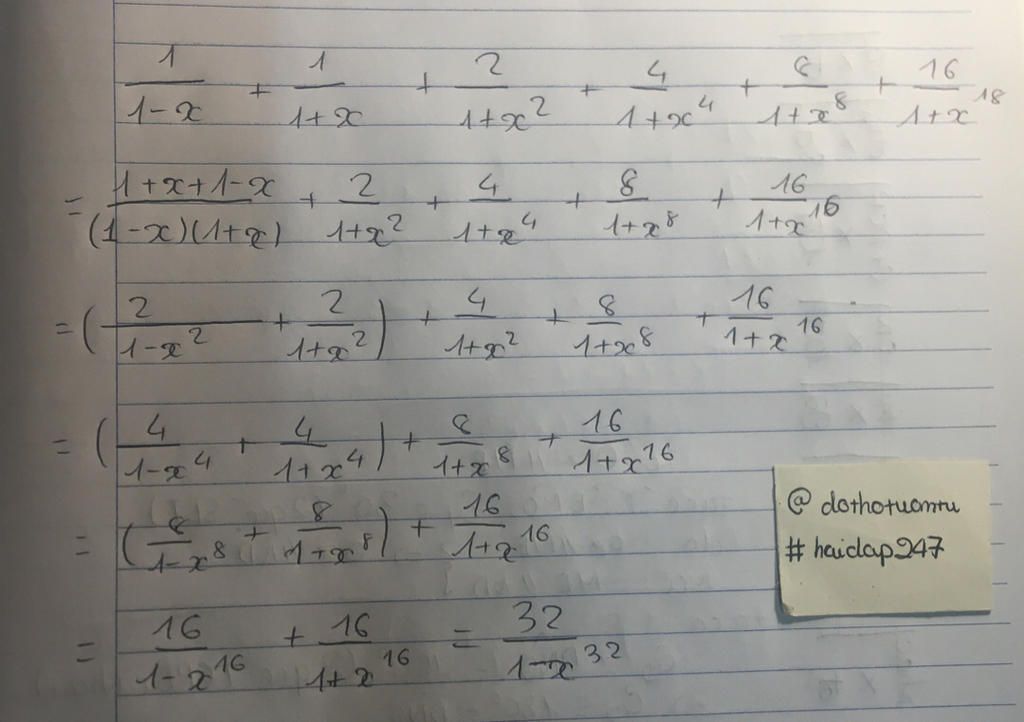 1/(1-x) + 1/(1+x) + 2/(1+x^2) + 4/(1+x^4) + 8/(1+x^8) + 16/(1+x^18)
= (1+x+1-x)/((1-x)(1+x)) + 2/(1+x^2) + 4/(1+x^4) + 8/(1+x^8) + 16/(1+x^16)
= (2/(1-x^2) + 2/(1+x^2)) + 4/(1+x^2) + 8/(1+x^8) + 16/(1+x^16)
= (4/(1-x^4) + 4/(1+x^4)) + 8/(1+x^8) + 16/(1+x^16)
= (8/(1-x^8) + 8/(1+x^8)) + 16/(1+x^16)
= 16/(1-x^16) + 16/(1+x^16) = 32/(1-x^32)
@ dothotuomtu
# haidap247